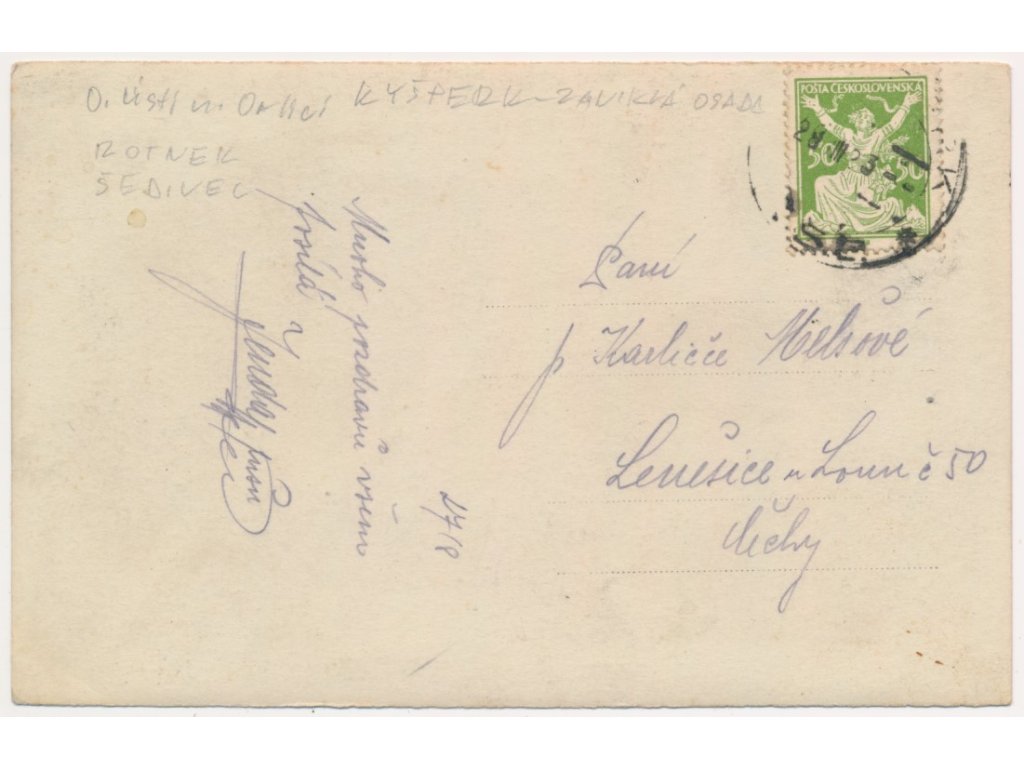 O. Ústí n. Orlicí KYŠPERK-ZANIKLÁ OSADA
ROTNEK
ŠEDIVEC
POŠTA ČESKOSLOVENSKÁ
50 50
Mnoho pozdravů všem
posílá
17/8
Paní
p Karličce
Lenešice u Loun č 50
Čechy